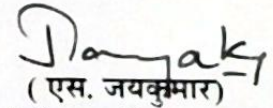 ( एस. जयकुमार)